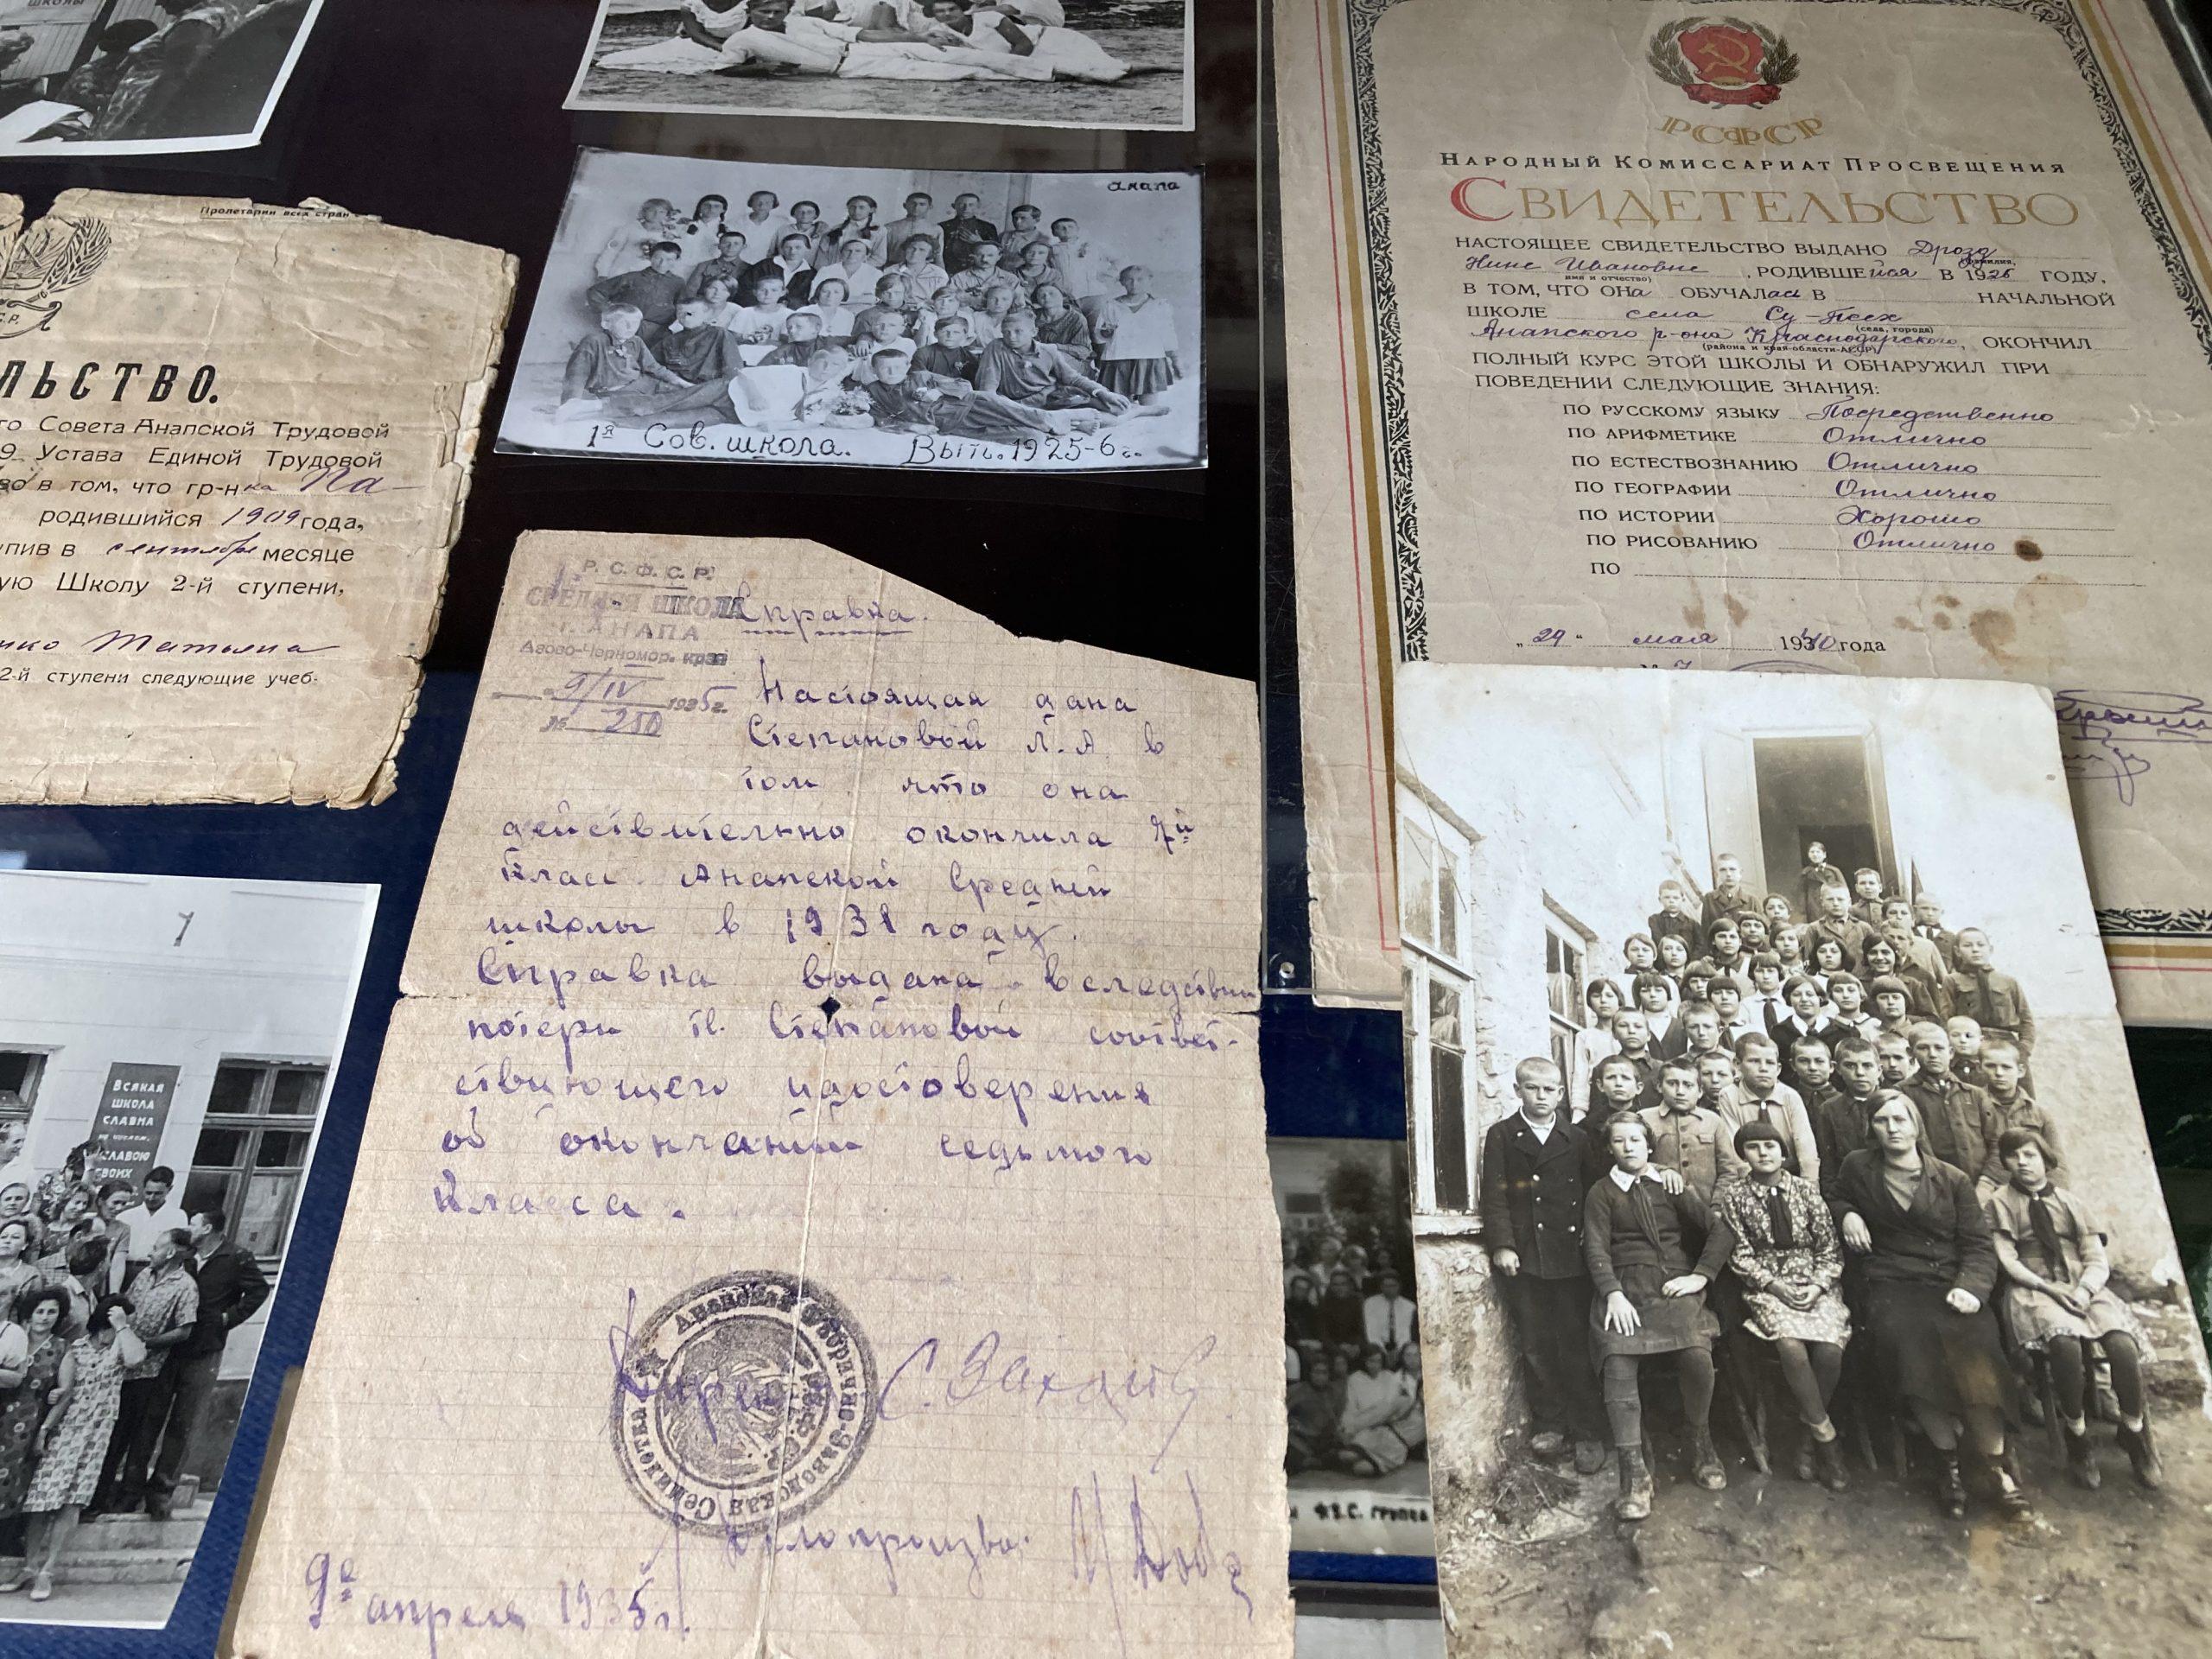 школы
Пролетарии всех стран
С.Р.
ЛЬСТВО.
го Совета Анапской Трудовой
9. Устава Единой Трудовой
во в том, что гр-нка Па-
родившийся 1909 года,
пив в сентябре месяце
ую Школу 2-й ступени,
нко Татьяна
2-й ступени следующие учеб-
Анапа
1я Сов. школа. Вып. 1925-6 г.
РСФСР
Народный Комиссариат Просвещения
Свидетельство
настоящее свидетельство выдано Дрозд
фамилия,
Нине Ивановне, родившейся в 1926 году,
имя и отчество)
в том, что она обучалась в начальной
школе села Су-Псех
(села, города)
Анапского р-она Краснодарского, окончил
(района и края-области-АССР)
полный курс этой школы и обнаружил при
поведении следующие знания:
по русскому языку Посредственно
по арифметике Отлично
по естествознанию Отлично
по географии Отлично
по истории Хорошо
по рисованию Отлично
по
„29“ мая 1940 года
Р. С. Ф. С. Р.
СРЕДНЯЯ ШКОЛА Справка.
г. АНАПА
Азово-Черномор. край
9/IV 1935 г.
№ 250
Настоящая дана
Степановой Л. А в
том что она
действительно окончила 7й
Класс Анапской Средней
школы в 1931 году.
Справка выдана вследствии
потери т. Степановой соответ-
ствующего удостоверения
об окончании седьмого
Класса.
Анапская Фабрично-Заводская Семилетка
Р.С.Ф.С.Р.
Директор С.
Делопроизво.
9го апреля 1935 г.
Всякая
школа
славна
не числом,
а славою
своих
Ф.З.С. группа